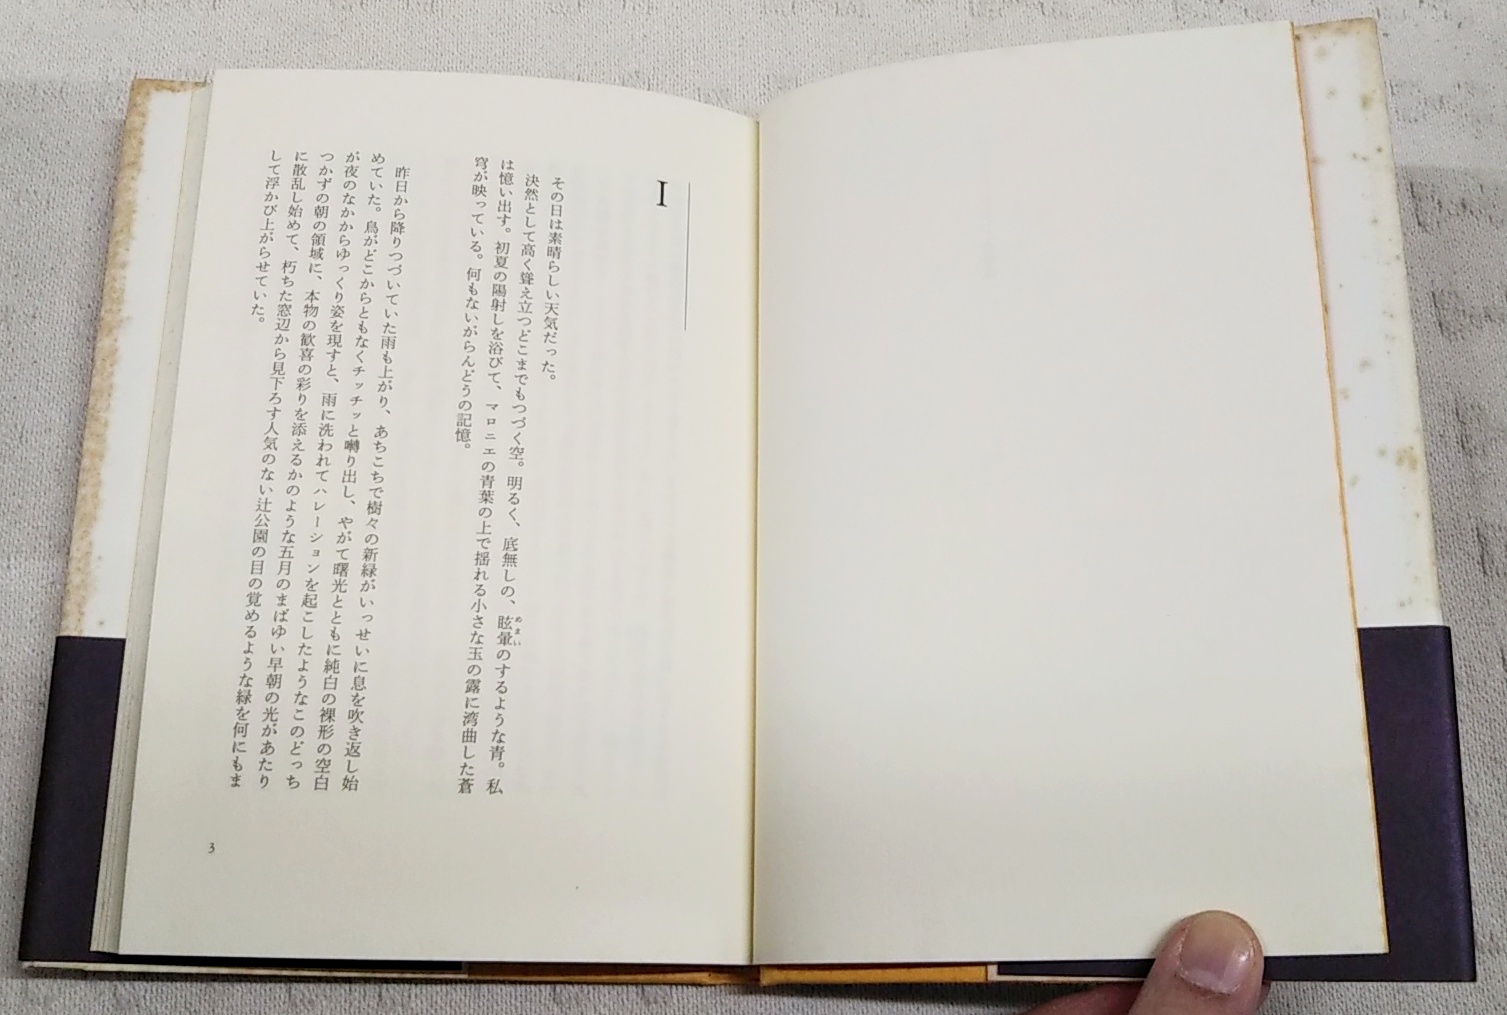 I
その日は素晴らしい天気だった。
決然として高く聳え立つどこまでもつづく空。明るく、底無しの、眩暈のするような青。私
めまい
は憶い出す。初夏の陽射しを浴びて、マロニエの青葉の上で揺れる小さな玉の露に湾曲した蒼
穹が映っている。何もないがらんどうの記憶。
昨日から降りつづいていた雨も上がり、あちこちで樹々の新緑がいっせいに息を吹き返し始
めていた。鳥がどこからともなくチッチッと囀り出し、やがて曙光とともに純白の裸形の空白
が夜のなかからゆっくり姿を現すと、雨に洗われてハレーションを起こしたようなこのどっち
つかずの朝の領域に、本物の歓喜の彩りを添えるかのような五月のまばゆい早朝の光があたり
に散乱し始めて、朽ちた窓辺から見下ろす人気のない辻公園の目の覚めるような緑を何にもま
して浮かび上がらせていた。
3